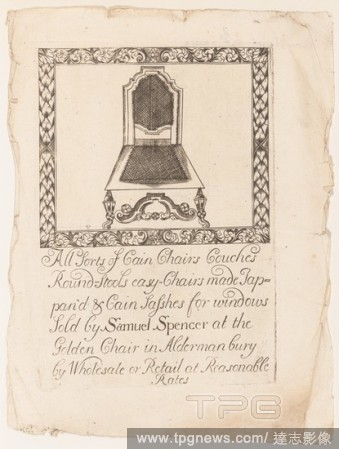 All Sorts of Cain Chairs Couches
Round-Stools easy-Chairs made Jap=
pan'd & Cain Sasshes for windows
Sold by Samuel Spencer at the
Golden Chair in Alderman bury
by Wholesale or Retail at Reasonable
Rates
TPG
www.tpgnews.com/達志影像